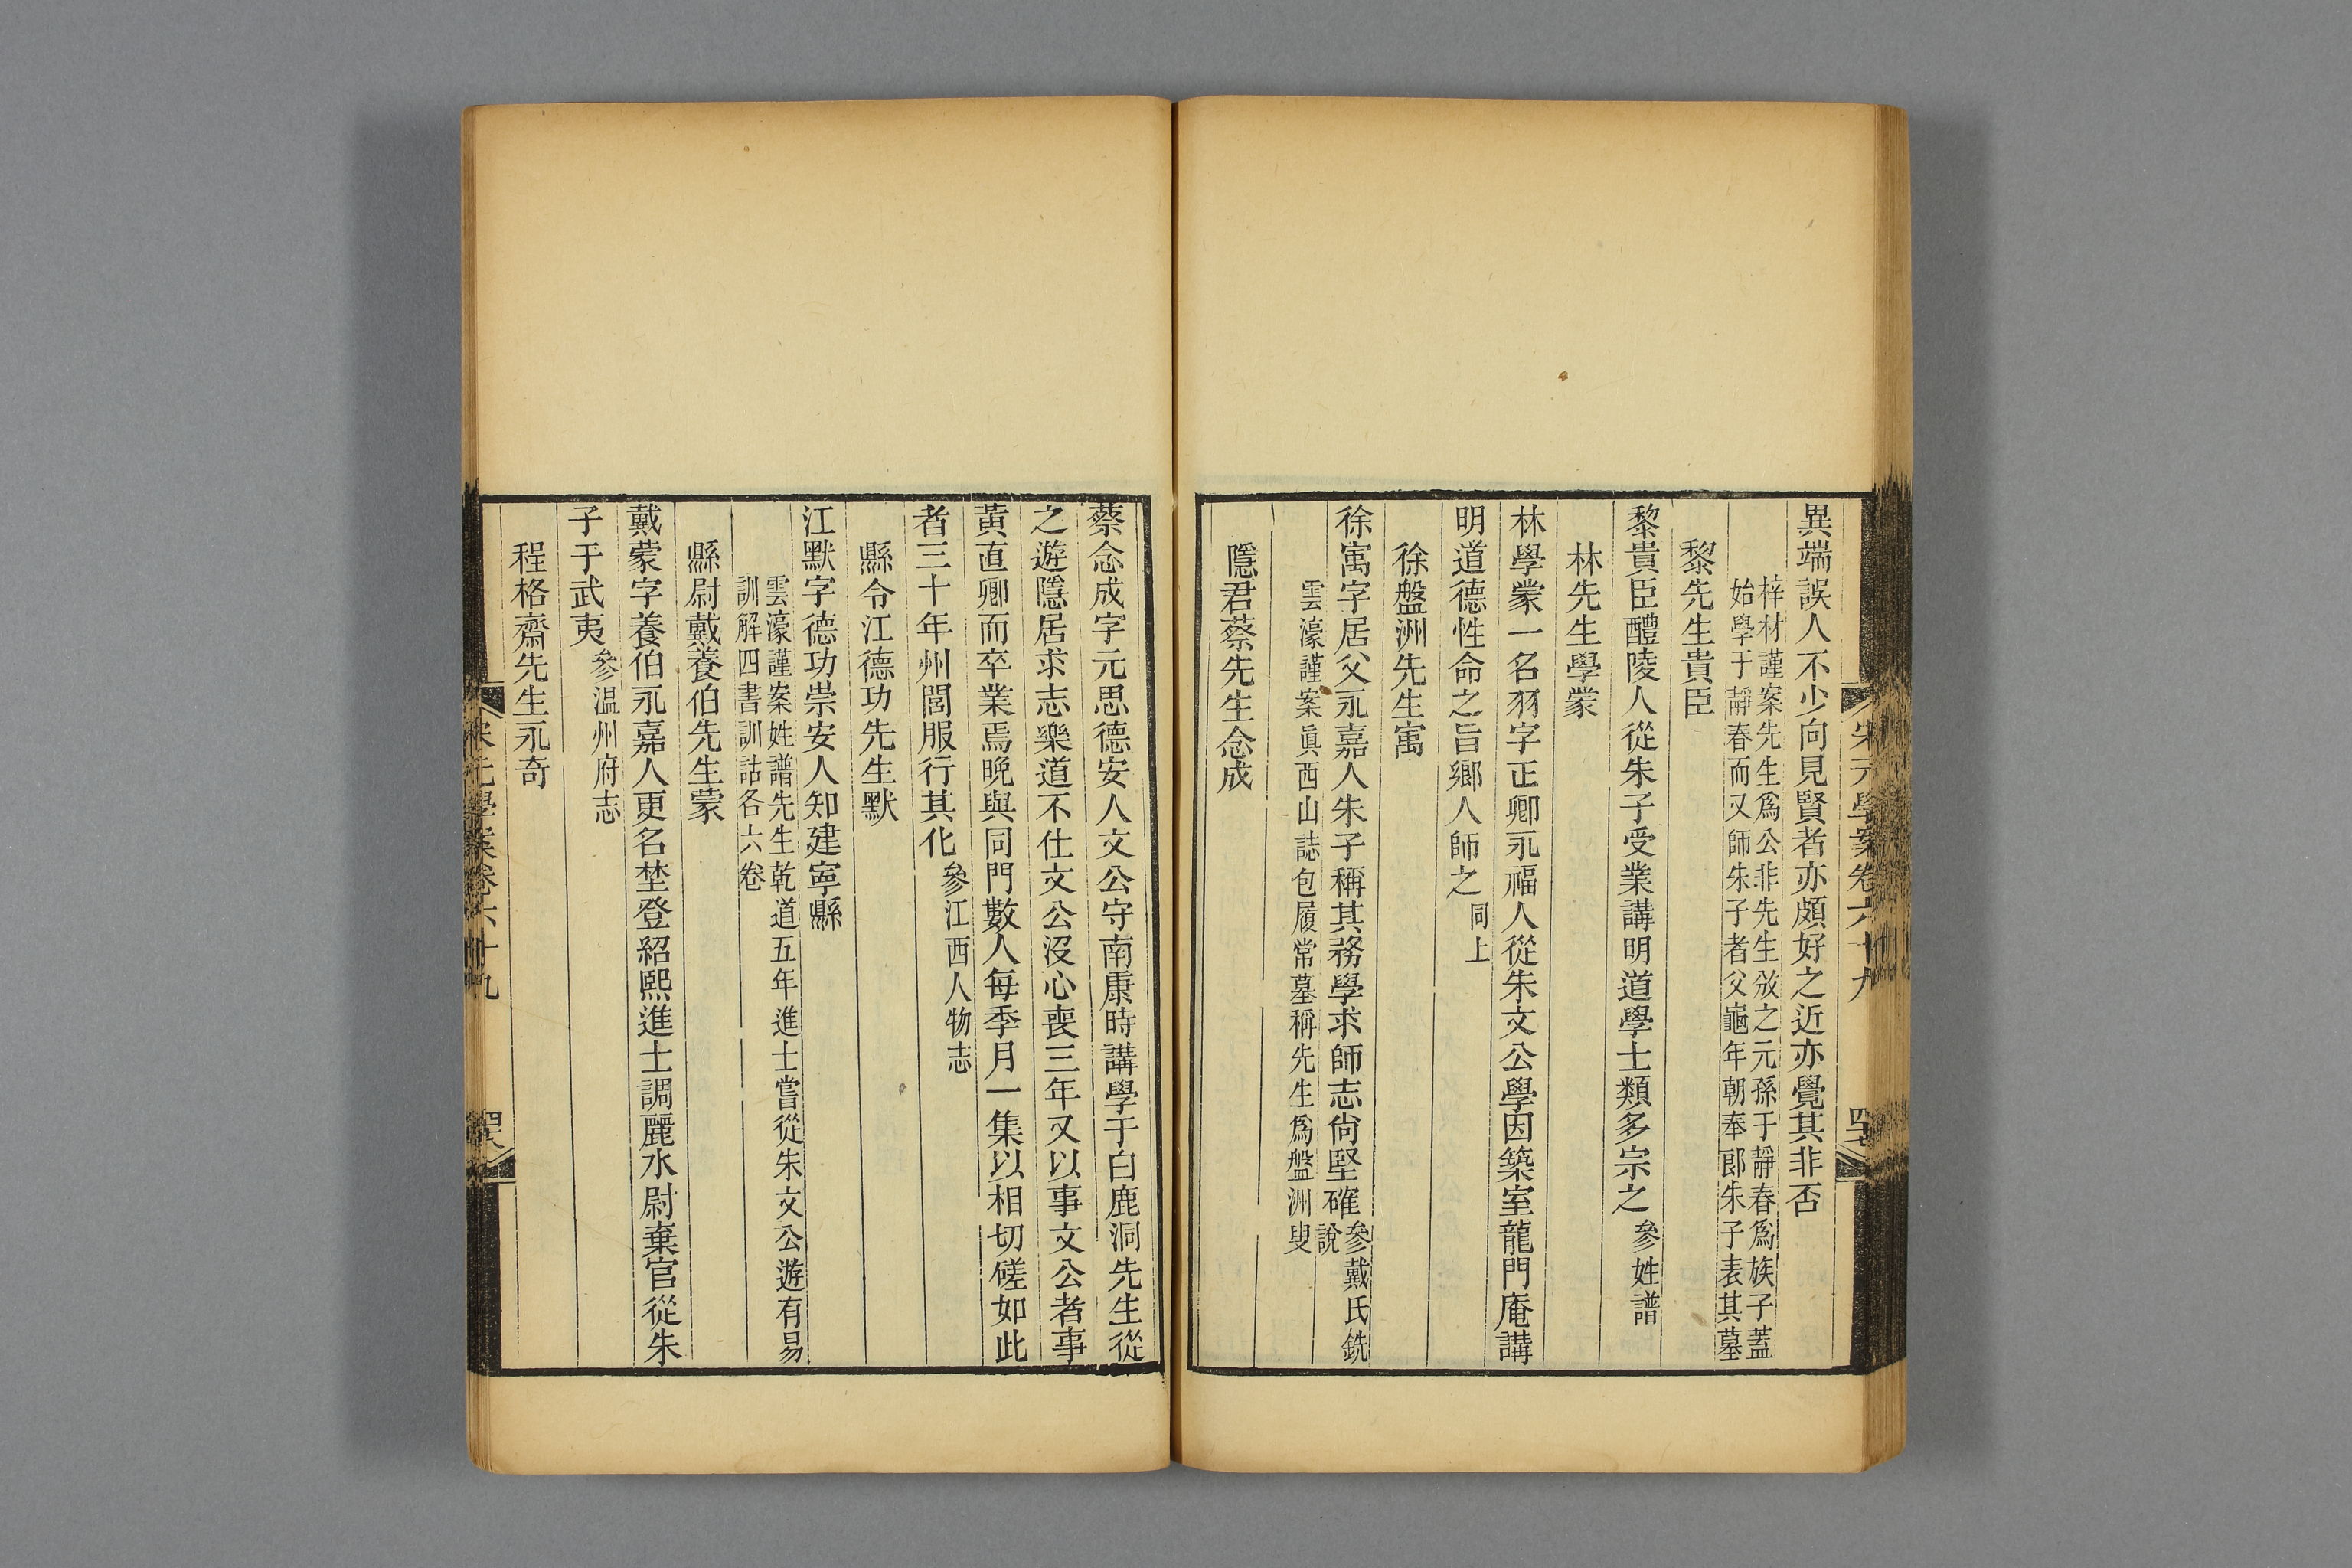 異端誤人不少向見賢者亦頗好之近亦覺其非否
梓材謹案先生爲公非先生攽之元孫于靜春爲族子蓋
始學于靜春而又師朱子者父龜年朝奉郎朱子表其墓
黎先生貴臣
黎貴臣醴陵人從朱子受業講明道學士類多宗之參姓譜
林先生學蒙
林學蒙一名羽字正卿永福人從朱文公學因築室龍門庵講
明道德性命之旨鄉人師之同上
徐盤洲先生㝢
徐㝢字居父永嘉人朱子稱其務學求師志尙堅確參戴氏銑
說
雲濠謹案眞西山誌包履常墓稱先生爲盤洲叟
隱君蔡先生念成
宋元學案卷六十九
蔡念成字元思德安人文公守南康時講學于白鹿洞先生從
之遊隱居求志樂道不仕文公沒心喪三年又以事文公者事
黃直卿而卒業焉晚與同門數人每季月一集以相切磋如此
者三十年州閭服行其化參江西人物志
縣令江德功先生默
江默字德功崇安人知建寧縣
雲濠謹案姓譜先生乾道五年進士嘗從朱文公遊有易
訓解四書訓詁各六卷
縣尉戴養伯先生蒙
戴蒙字養伯永嘉人更名埜登紹熙進士調麗水尉棄官從朱
子于武夷參温州府志
程格齋先生永奇
宋元學案卷六十九